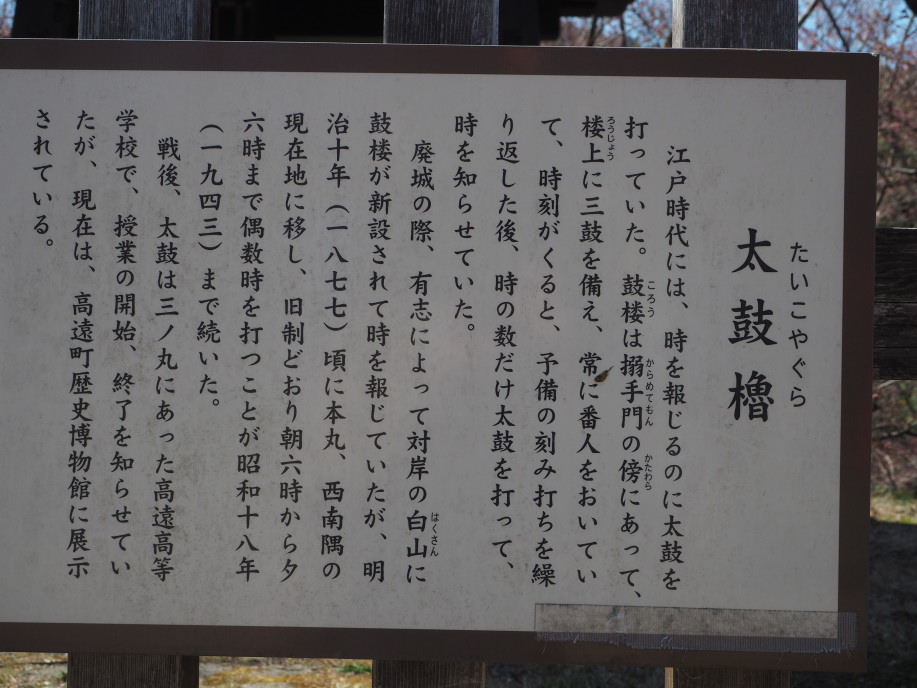 たいこやぐら
太鼓櫓
江戸時代には、時を報じるのに太鼓を
打っていた。鼓楼は搦手門の傍にあって、
楼上に三鼓を備え、常に番人をおいてい
て、時刻がくると、予備の刻み打ちを繰
り返した後、時の数だけ太鼓を打って、
時を知らせていた。
廃城の際、有志によって対岸の白山に
鼓楼が新設されて時を報じていたが、明
治十年（一八七七）頃に本丸、西南隅の
現在地に移し、旧制どおり朝六時から夕
六時まで偶数時を打つことが昭和十八年
（一九四三）まで続いた。
戦後、太鼓は三ノ丸にあった高遠高等
学校で、授業の開始、終了を知らせてい
たが、現在は、高遠町歴史博物館に展示
されている。
ころう
からめてもん
かたわら
ろうじょう
はくさん